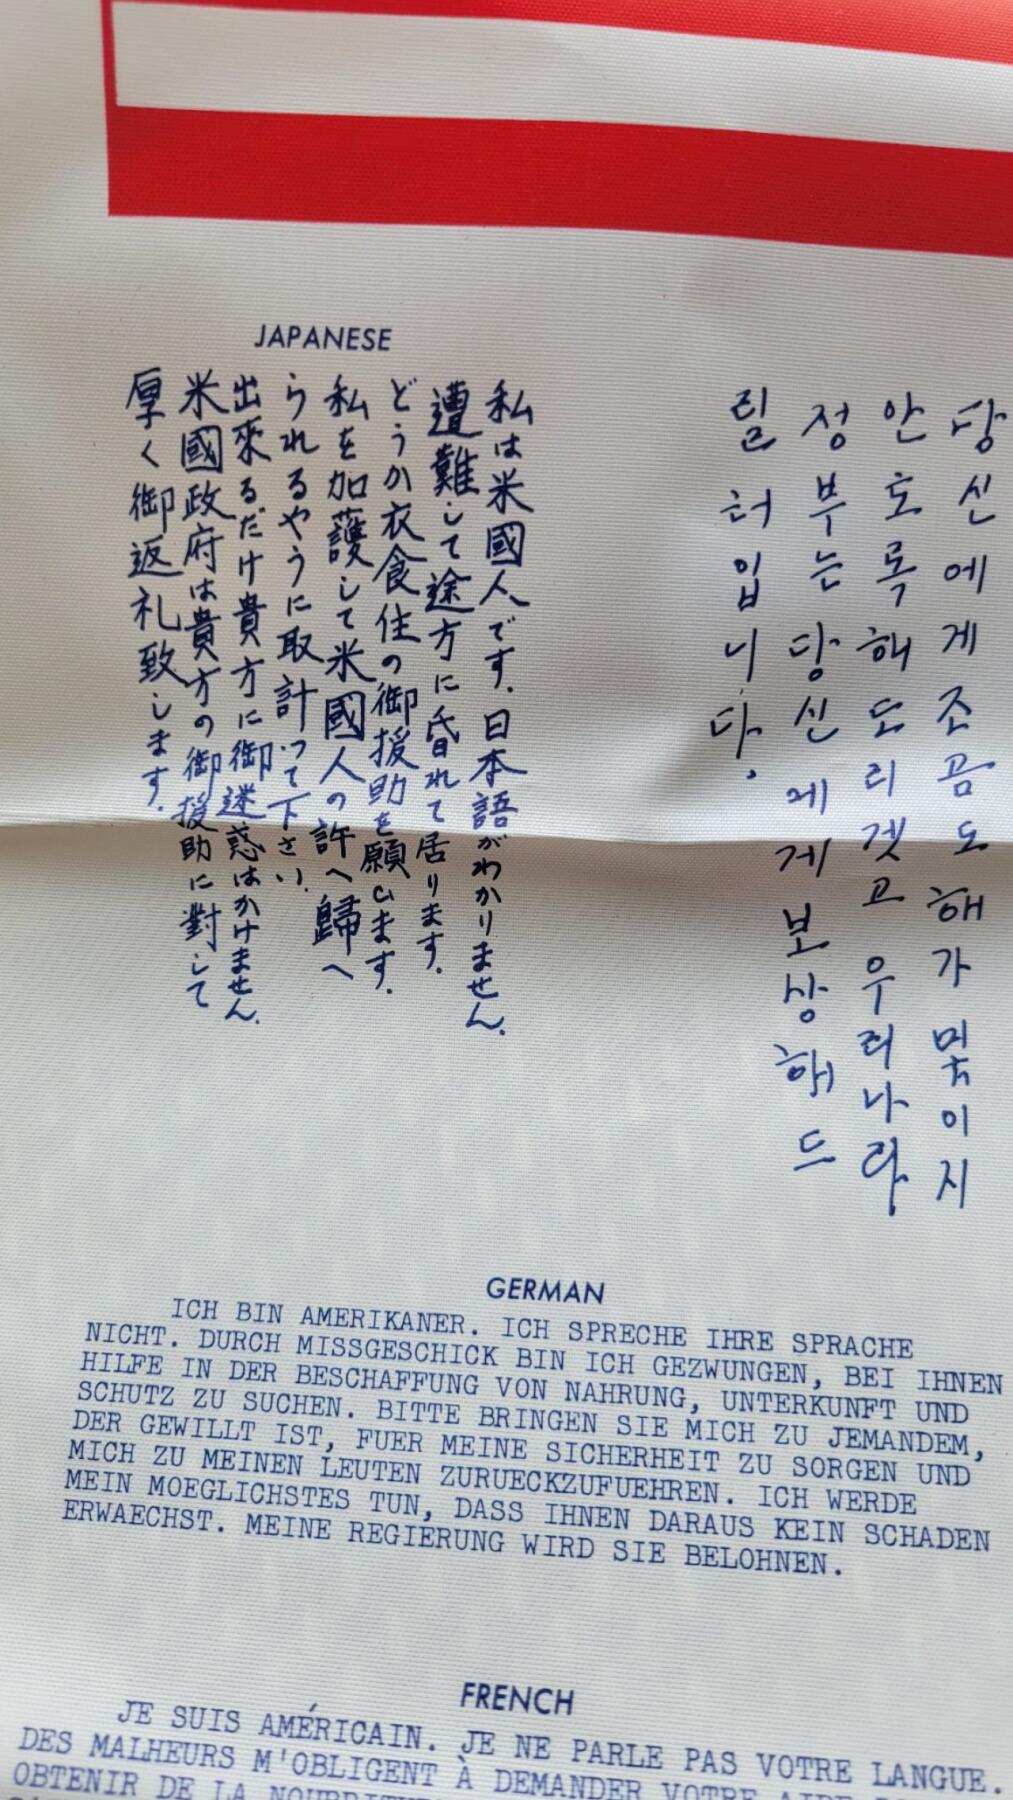 JAPANESE
私は米國人です.日本語がわかりません.
遭難して途方に昏れて居ります.
どうか衣食住の御援助を願ひます.
私を加護して米國人の許へ歸へ
られるやうに取計って下さい.
出來るだけ貴方に御迷惑はかけません.
米國政府は貴方の御援助に對して
厚く御返礼致します.
당신에게 조곰도 해가 및이지
안호록 해도리겟고 우리나라
정부는 당신에게 보상해드
릴 터입니다.
GERMAN
ICH BIN AMERIKANER. ICH SPRECHE IHRE SPRACHE
NICHT. DURCH MISSGESCHICK BIN ICH GEZWUNGEN, BEI IHNEN
HILFE IN DER BESCHAFFUNG VON NAHRUNG, UNTERKUNFT UND
SCHUTZ ZU SUCHEN. BITTE BRINGEN SIE MICH ZU JEMANDEM,
DER GEWILLT IST, FUER MEINE SICHERHEIT ZU SORGEN UND
MICH ZU MEINEN LEUTEN ZURUECKZUFUEHREN. ICH WERDE
MEIN MOEGLICHSTES TUN, DASS IHNEN DARAUS KEIN SCHADEN
ERWAECHST. MEINE REGIERUNG WIRD SIE BELOHNEN.
FRENCH
JE SUIS AMÉRICAIN. JE NE PARLE PAS VOTRE LANGUE.
DES MALHEURS M'OBLIGENT À DEMANDER VOTRE
OBTENIR DE LA